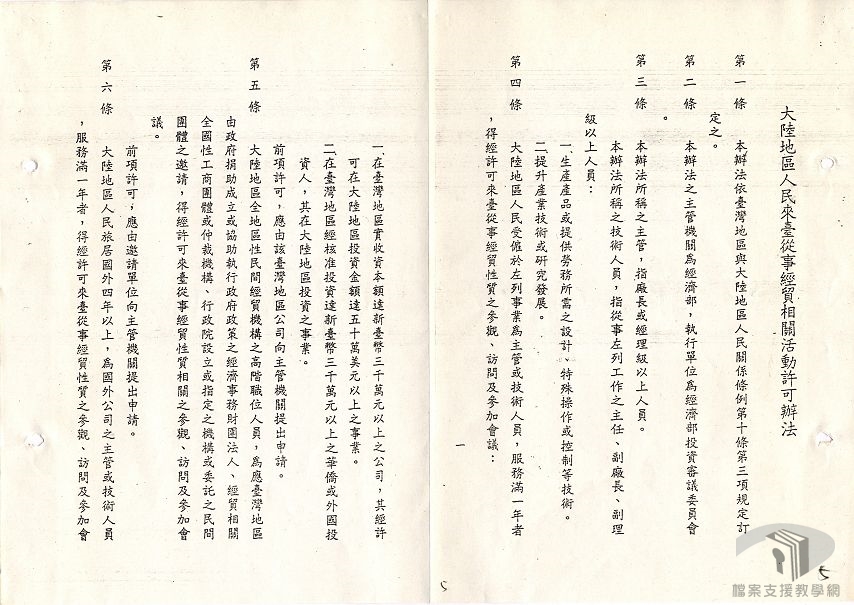 大陸地區人民來臺從事經貿相關活動許可辦法
第一條　本辦法依臺灣地區與大陸地區人民關係條例第十條第三項規定訂
定之。
第二條　本辦法之主管機關為經濟部，執行單位為經濟部投資審議委員會
。
第三條　本辦法所稱之主管，指廠長或經理級以上人員。
本辦法所稱之技術人員，指從事左列工作之主任、副廠長、副理
級以上人員：
一、生產產品或提供勞務所需之設計、特殊操作或控制等技術。
二、提升產業技術或研究發展。
第四條　大陸地區人民受僱於左列事業為主管或技術人員，服務滿一年者
，得經許可來臺從事經貿性質之參觀、訪問及參加會議：
一
5
一、在臺灣地區實收資本額達新臺幣三千萬元以上之公司，其經許
可在大陸地區投資金額達五十萬美元以上之事業。
二、在臺灣地區經核准投資達新臺幣三千萬元以上之華僑或外國投
資人，其在大陸地區投資之事業。
前項許可，應由該臺灣地區公司向主管機關提出申請。
第五條　大陸地區全地區性民間經貿機構之高階職位人員，為應臺灣地區
由政府捐助成立或協助執行政府政策之經濟事務財團法人、經貿相關
全國性工商團體或仲裁機構、行政院設立或指定之機構或委託之民間
團體之邀請，得經許可來臺從事經貿性質相關之參觀、訪問及參加會
議。
前項許可，應由邀請單位向主管機關提出申請。
第六條　大陸地區人民旅居國外四年以上，為國外公司之主管或技術人員
，服務滿一年者，得經許可來臺從事經貿性質之參觀、訪問及參加會
5
檔案支援教學網